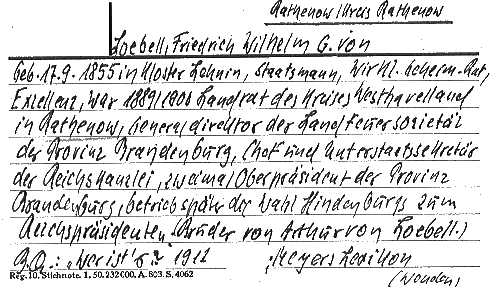 Rathenow/Kreis Rathenow
Loebell, Friedrich Wilhelm G. von
Geb. 17.9.1855 in Kloster Lehnin, Staatsmann, Wirkl. Geheim-Rat,
Exzellenz, war 1889/1900 Landrat des Kreises Westhavelland
in Rathenow, Generaldirektor der Landfeuersozietät
der Provinz Brandenburg, Chef und Unterstaatssekretär
der Reichskanzlei, zweimal Oberpräsident der Provinz
Brandenburg, betrieb später die Wahl Hindenburgs zum
Reichspräsidenten. (Bruder von Arthur von Loebell.)
"Wer ist's?" 1912 Meyers Lexikon
Reg. 10. Stichnote. 1, 50. 232000. A. 803. S. 4062